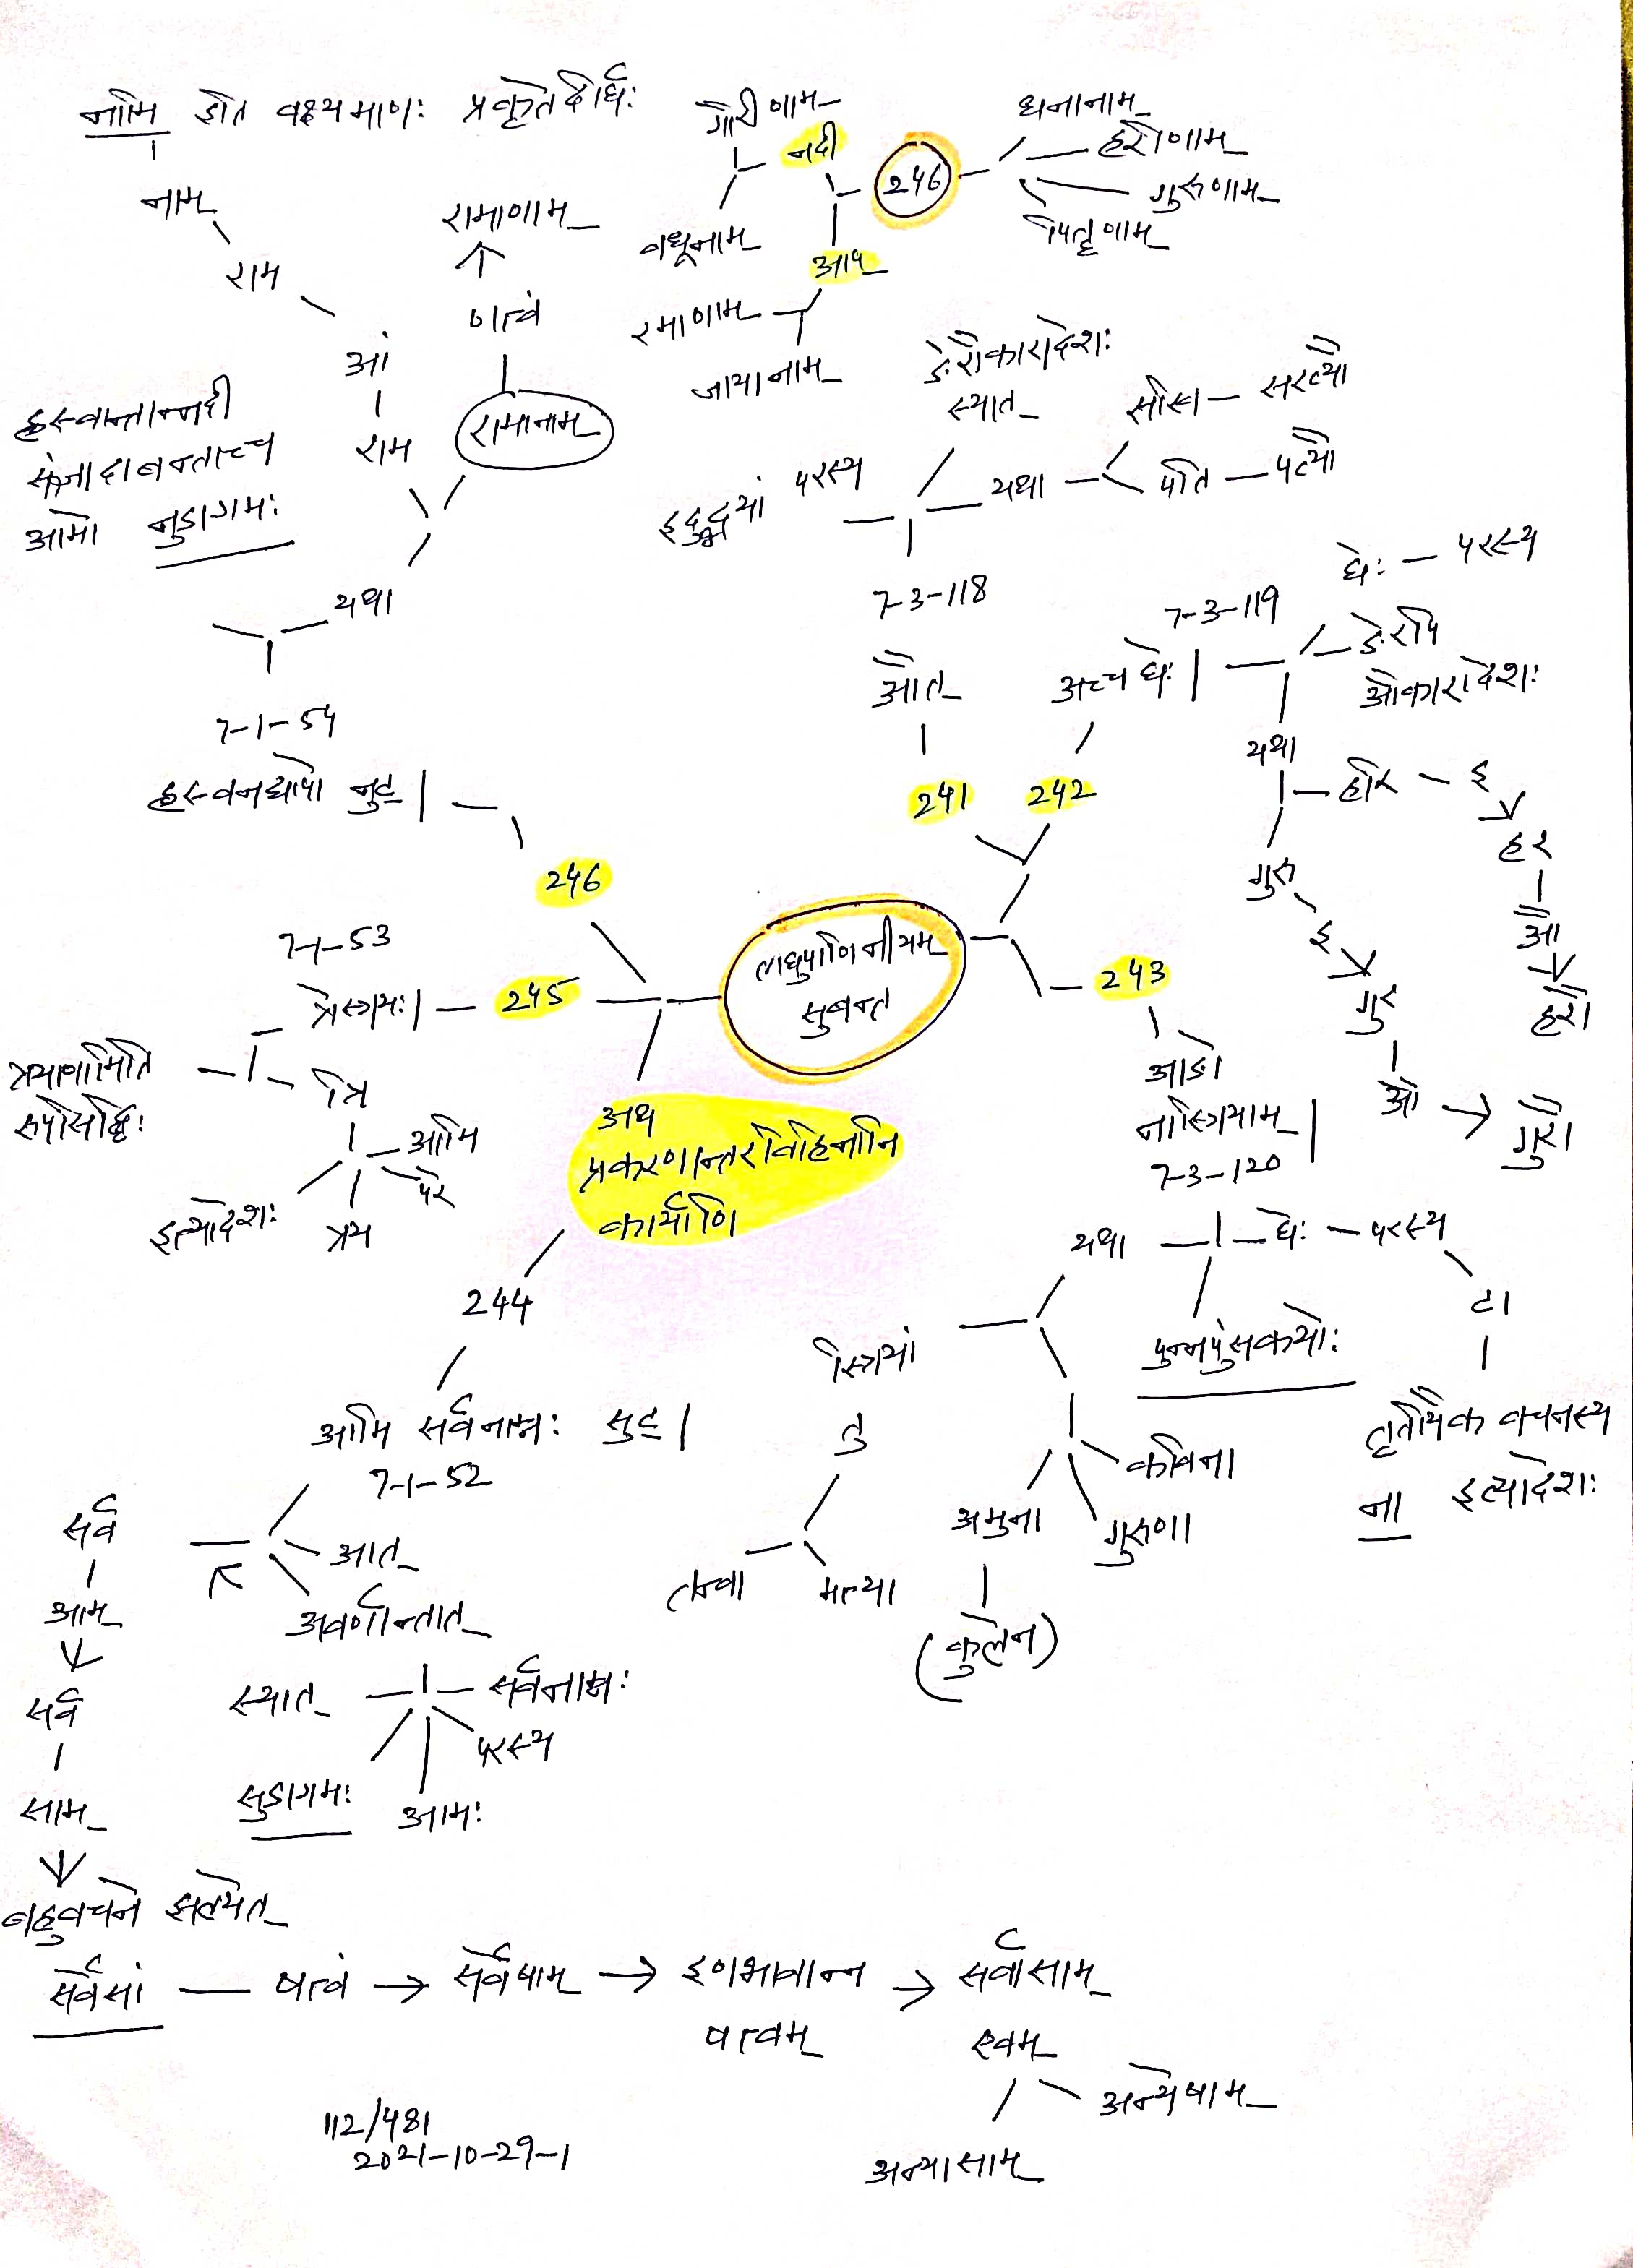 नामि इति वक्ष्यमाणः प्रकृतेर्दीर्घः
नाम्
राम
आं
राम
रामाणाम्
णत्वं
रामानाम्
ह्रस्वान्तान्नदी
संज्ञादाबन्ताच्च
आमो नुडागमः
यथा
7-1-54
ह्रस्वनद्यापो नुट् |
246
गौरीणाम्
नदी
वधूनाम्
246
आप्
रमाणाम्
जायानाम्
धनानाम्
हरीणाम्
गुरूणाम्
पितॄणाम्
ङेरौकारादेशः
स्यात्
इदुद्भ्यां परस्य
यथा
सखि — सख्यौ
पति — पत्यौ
7-3-118
औत्
241
7-3-119
अच्च घेः |
242
घेः — परस्य
ङेरपि
औकारादेशः
यथा
हरि — इ
हर
औ
हरौ
गुरु
इ
गुर
औ → गुरौ
लघुपाणिनीयम्
सुबन्त
243
आङो
नास्त्रियाम् |
7-3-120
यथा — घेः — परस्य
टा
पुन्नपुंसकयोः
तृतीयैकवचनस्य
ना इत्यादेशः
स्त्रियां
तु
तन्वा
मत्या
अमुना
गुरुणा
कविना
(कुलेन)
7-1-53
त्रेस्त्रयः | — 245
त्रयाणामिति
रूपसिद्धिः
त्रि
आमि
परे
त्रय
इत्यादेशः
अथ
प्रकरणान्तरविहितानि
कार्याणि
244
आमि सर्वनाम्नः सुट् |
7-1-52
आत्
अवर्णान्तात्
सर्वनाम्नः
परस्य
आमः
सुडागमः
स्यात्
सर्व
आम्
सर्व
साम्
बहुवचने झल्येत्
सर्वेसां — षत्वं → सर्वेषाम् → इणभावान्न → सर्वासाम्
षत्वम्
एवम्
अन्येषाम्
अन्यासाम्
112/481
2021-10-29-1